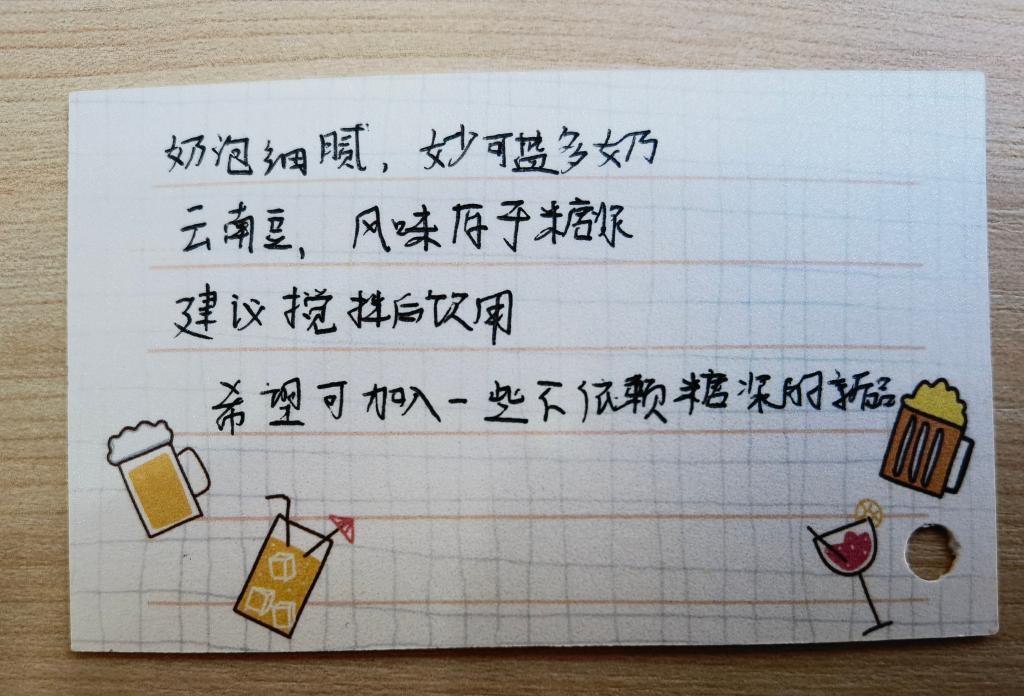 奶泡细腻，妙可蓝多奶
云南豆，风味存于糖浆
建议搅拌后饮用
希望可加入一些不依赖糖浆的新品